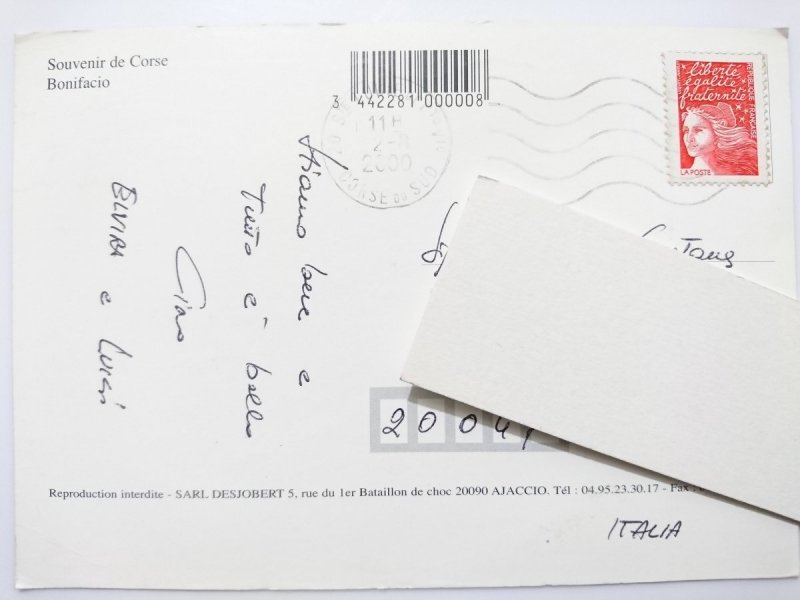 Souvenir de Corse
Bonifacio
3 442281 000008
11H
2000
CORSE DU SUD
liberté
égalité
fraternité
RÉPUBLIQUE FRANÇAISE
LA POSTE
Stiamo bene e
Tutto è bello
Ciao
ELVIRA e Luigi
2004
Reproduction interdite - SARL DESJOBERT 5, rue du 1er Bataillon de choc 20090 AJACCIO. Tél : 04.95.23.30.17 - Fax
ITALIA